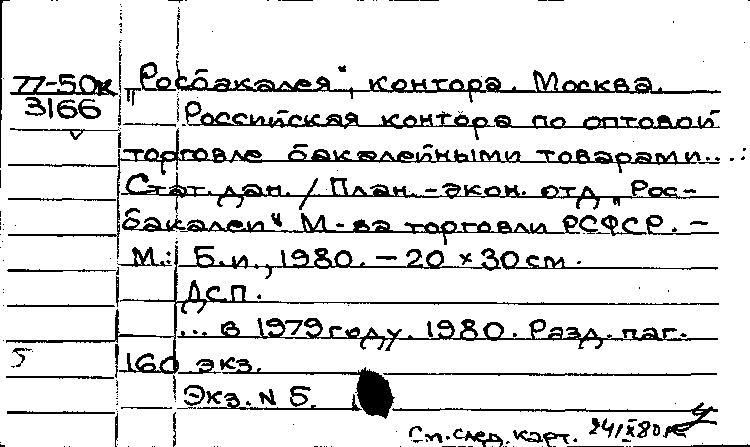 77-50к
3166
„Росбакалея“, контора. Москва.
Российская контора по оптовой
торговле бакалейными товарами...:
Стат. дан. / План.-экон. отд. „Рос-
бакалеи“ М-ва торговли РСФСР. –
М.: Б.и., 1980. – 20 × 30 см.
ДСП.
... в 1979 году. 1980. Разд. паг.
5 160 экз.
Экз. N 5.
См. след. карт.